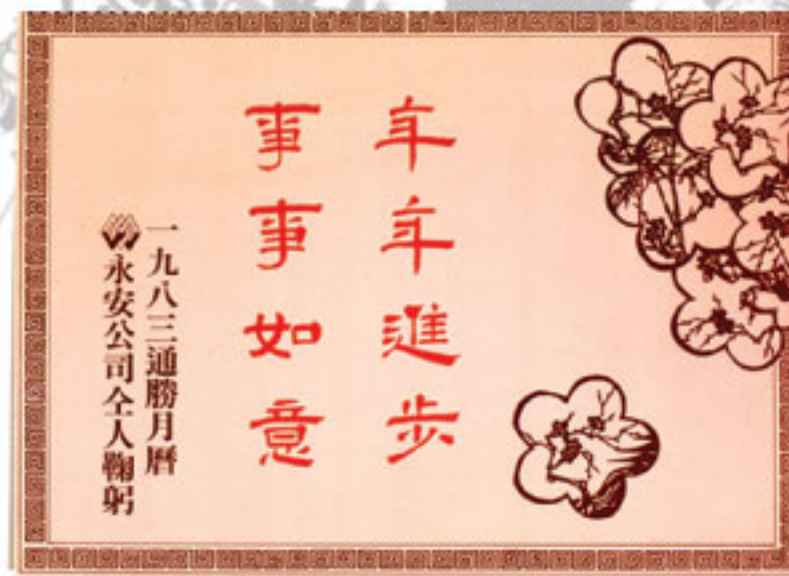 年年進步
事事如意
一九八三通勝月曆
永安公司仝人鞠躬